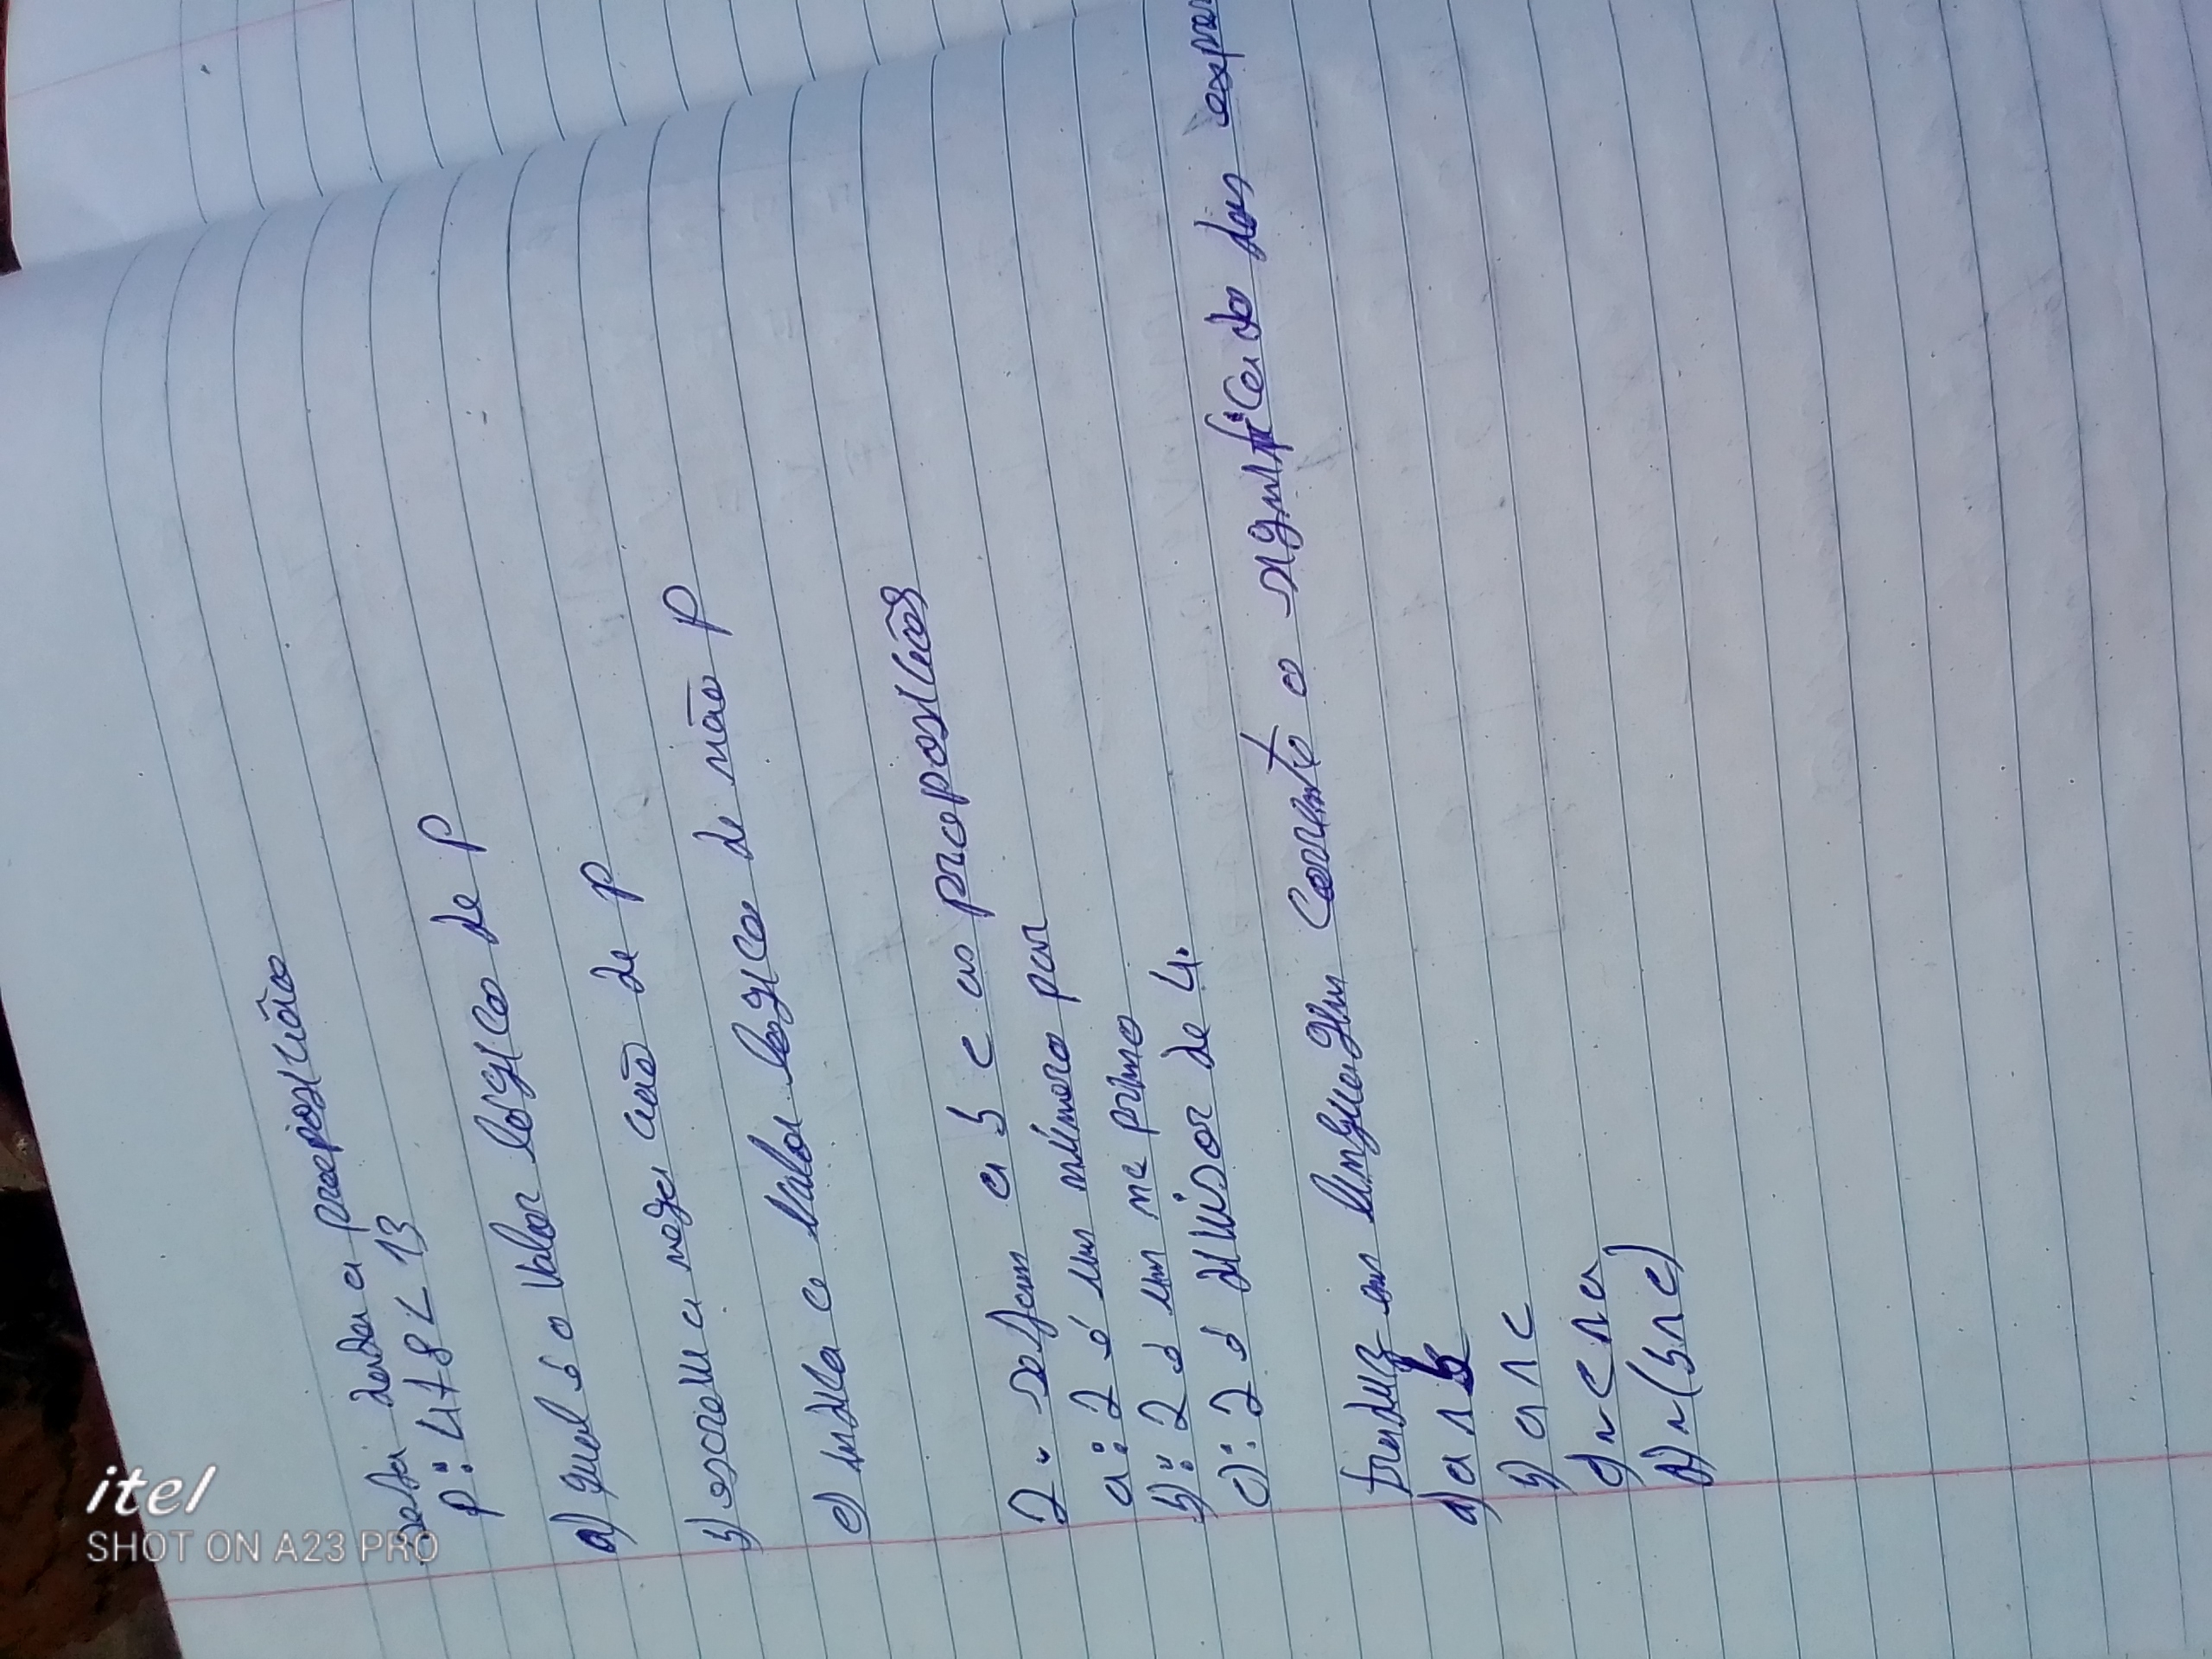 Seja dada a proposição
P: 4+8 < 13
a) qual é o valor lógico de P
b) escreva a negação de P
c) indica o valor lógico de não P
2. sejam a b c as proposições
a: 2 é um número par
b): 2 é um nº primo
c): 2 é divisor de 4.
traduz em linguagem corrente o significado das expre
a) a ∧ b
b) a ∧ c
c) ~ c ∧ a
d) ~ (b ∧ c)
itel
SHOT ON A23 PRO